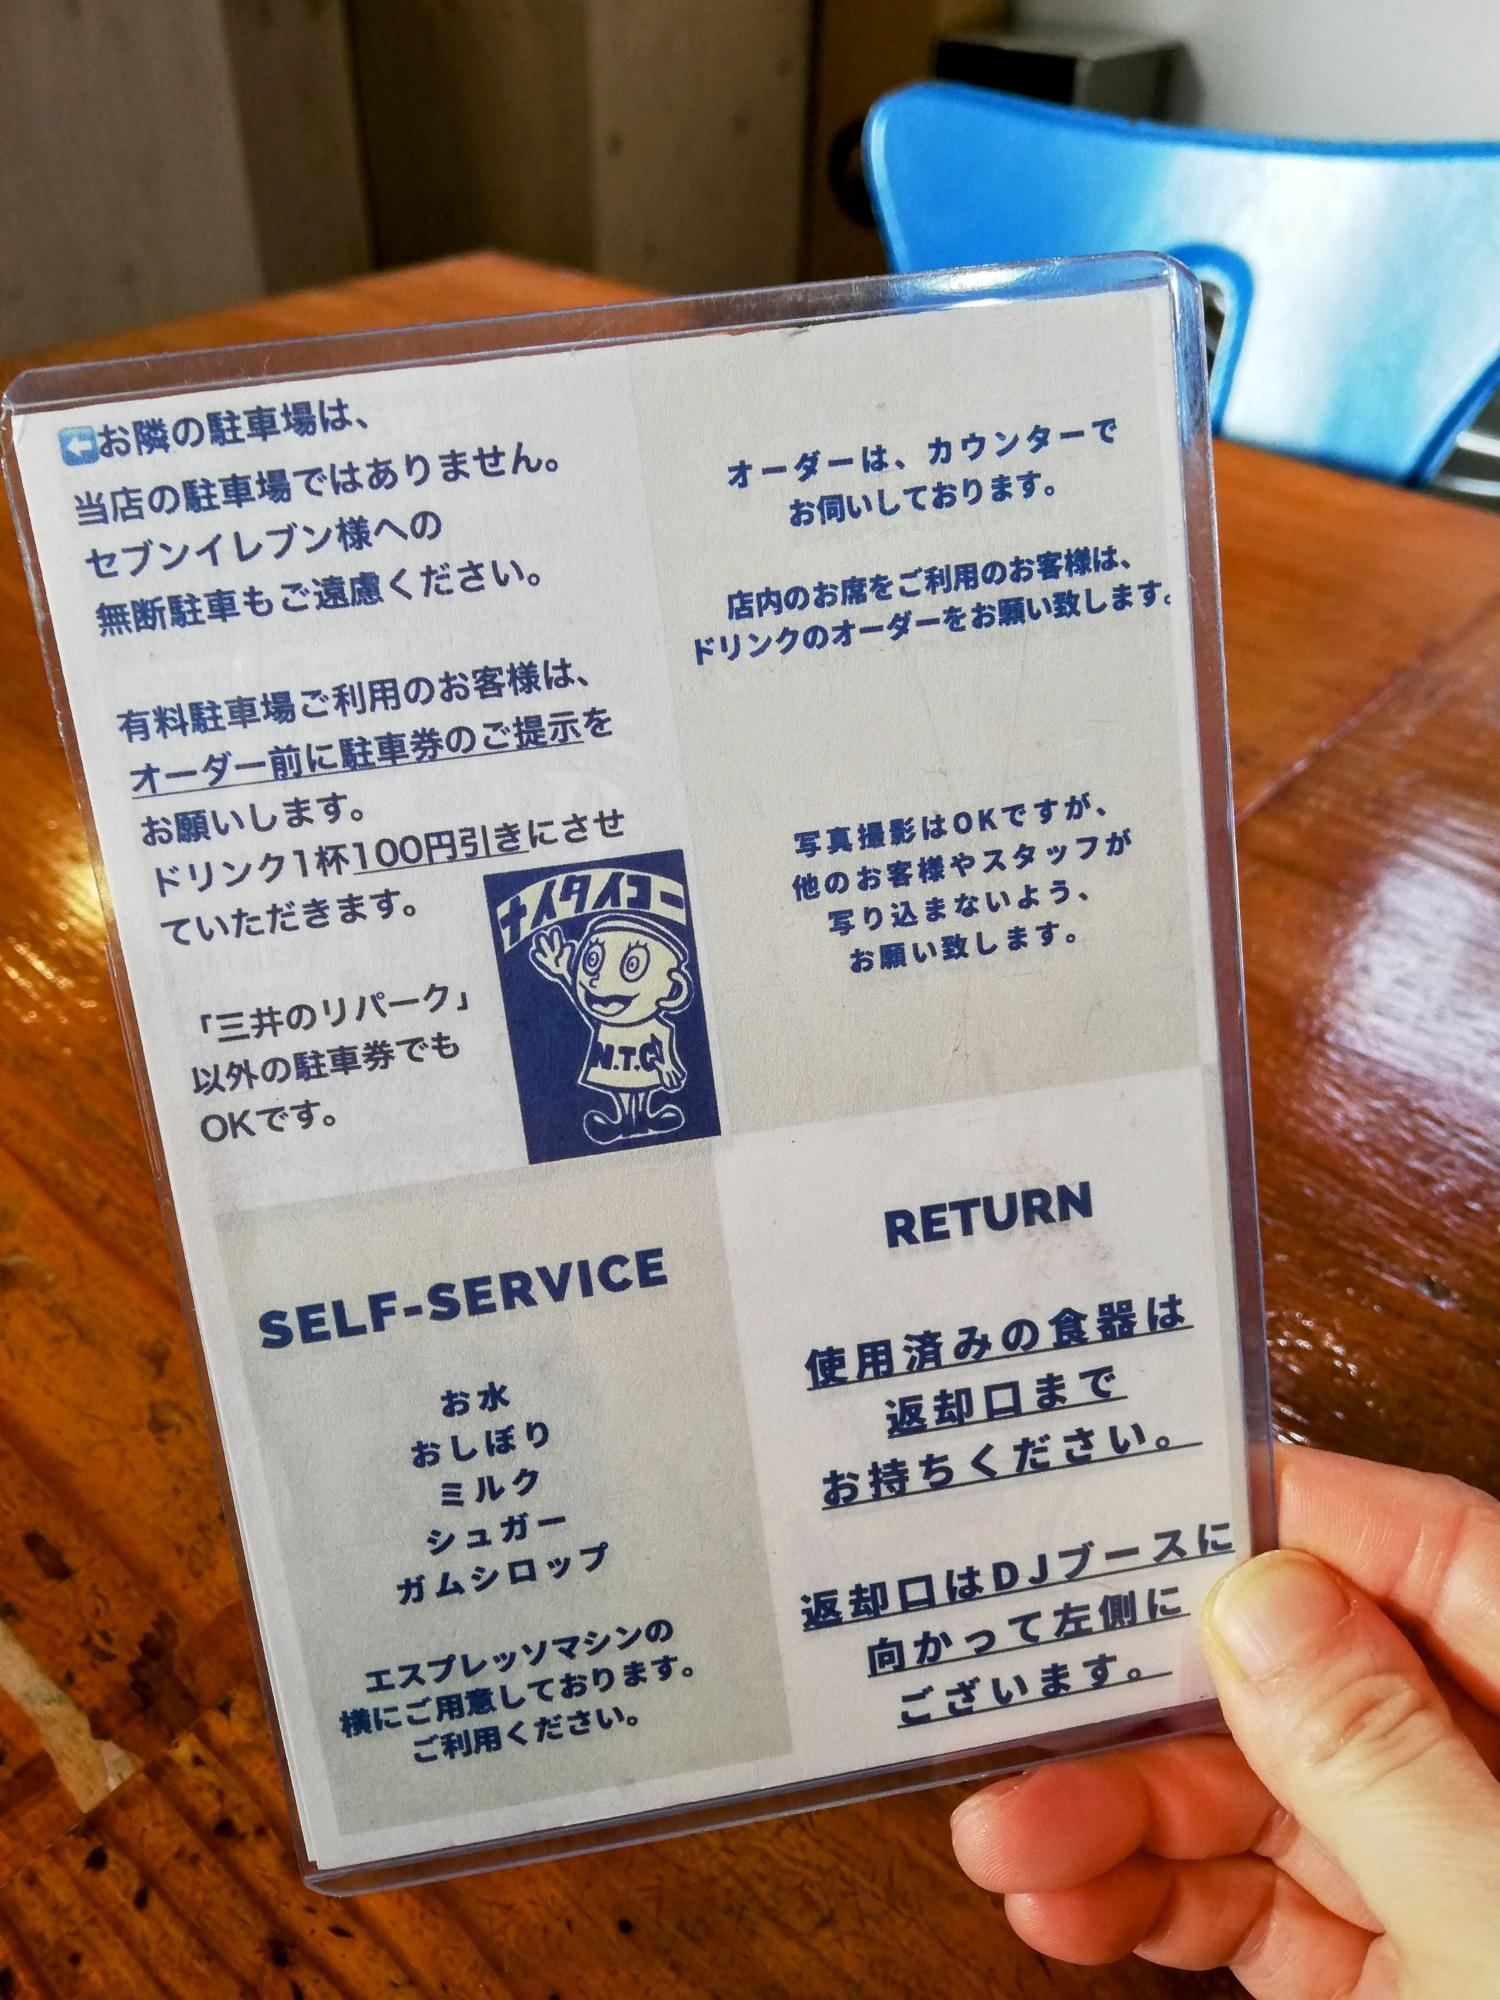 ⬅お隣の駐車場は、
当店の駐車場ではありません。
セブンイレブン様への
無断駐車もご遠慮ください。
有料駐車場ご利用のお客様は、
オーダー前に駐車券のご提示を
お願いします。
ドリンク1杯100円引きにさせ
ていただきます。
「三井のリパーク」
以外の駐車券でも
OKです。
ナイタイコー
N.T.C
オーダーは、カウンターで
お伺いしております。
店内のお席をご利用のお客様は、
ドリンクのオーダーをお願い致します。
写真撮影はOKですが、
他のお客様やスタッフが
写り込まないよう、
お願い致します。
SELF-SERVICE
お水
おしぼり
ミルク
シュガー
ガムシロップ
エスプレッソマシンの
横にご用意しております。
ご利用ください。
RETURN
使用済みの食器は
返却口まで
お持ちください。
返却口はDJブースに
向かって左側に
ございます。